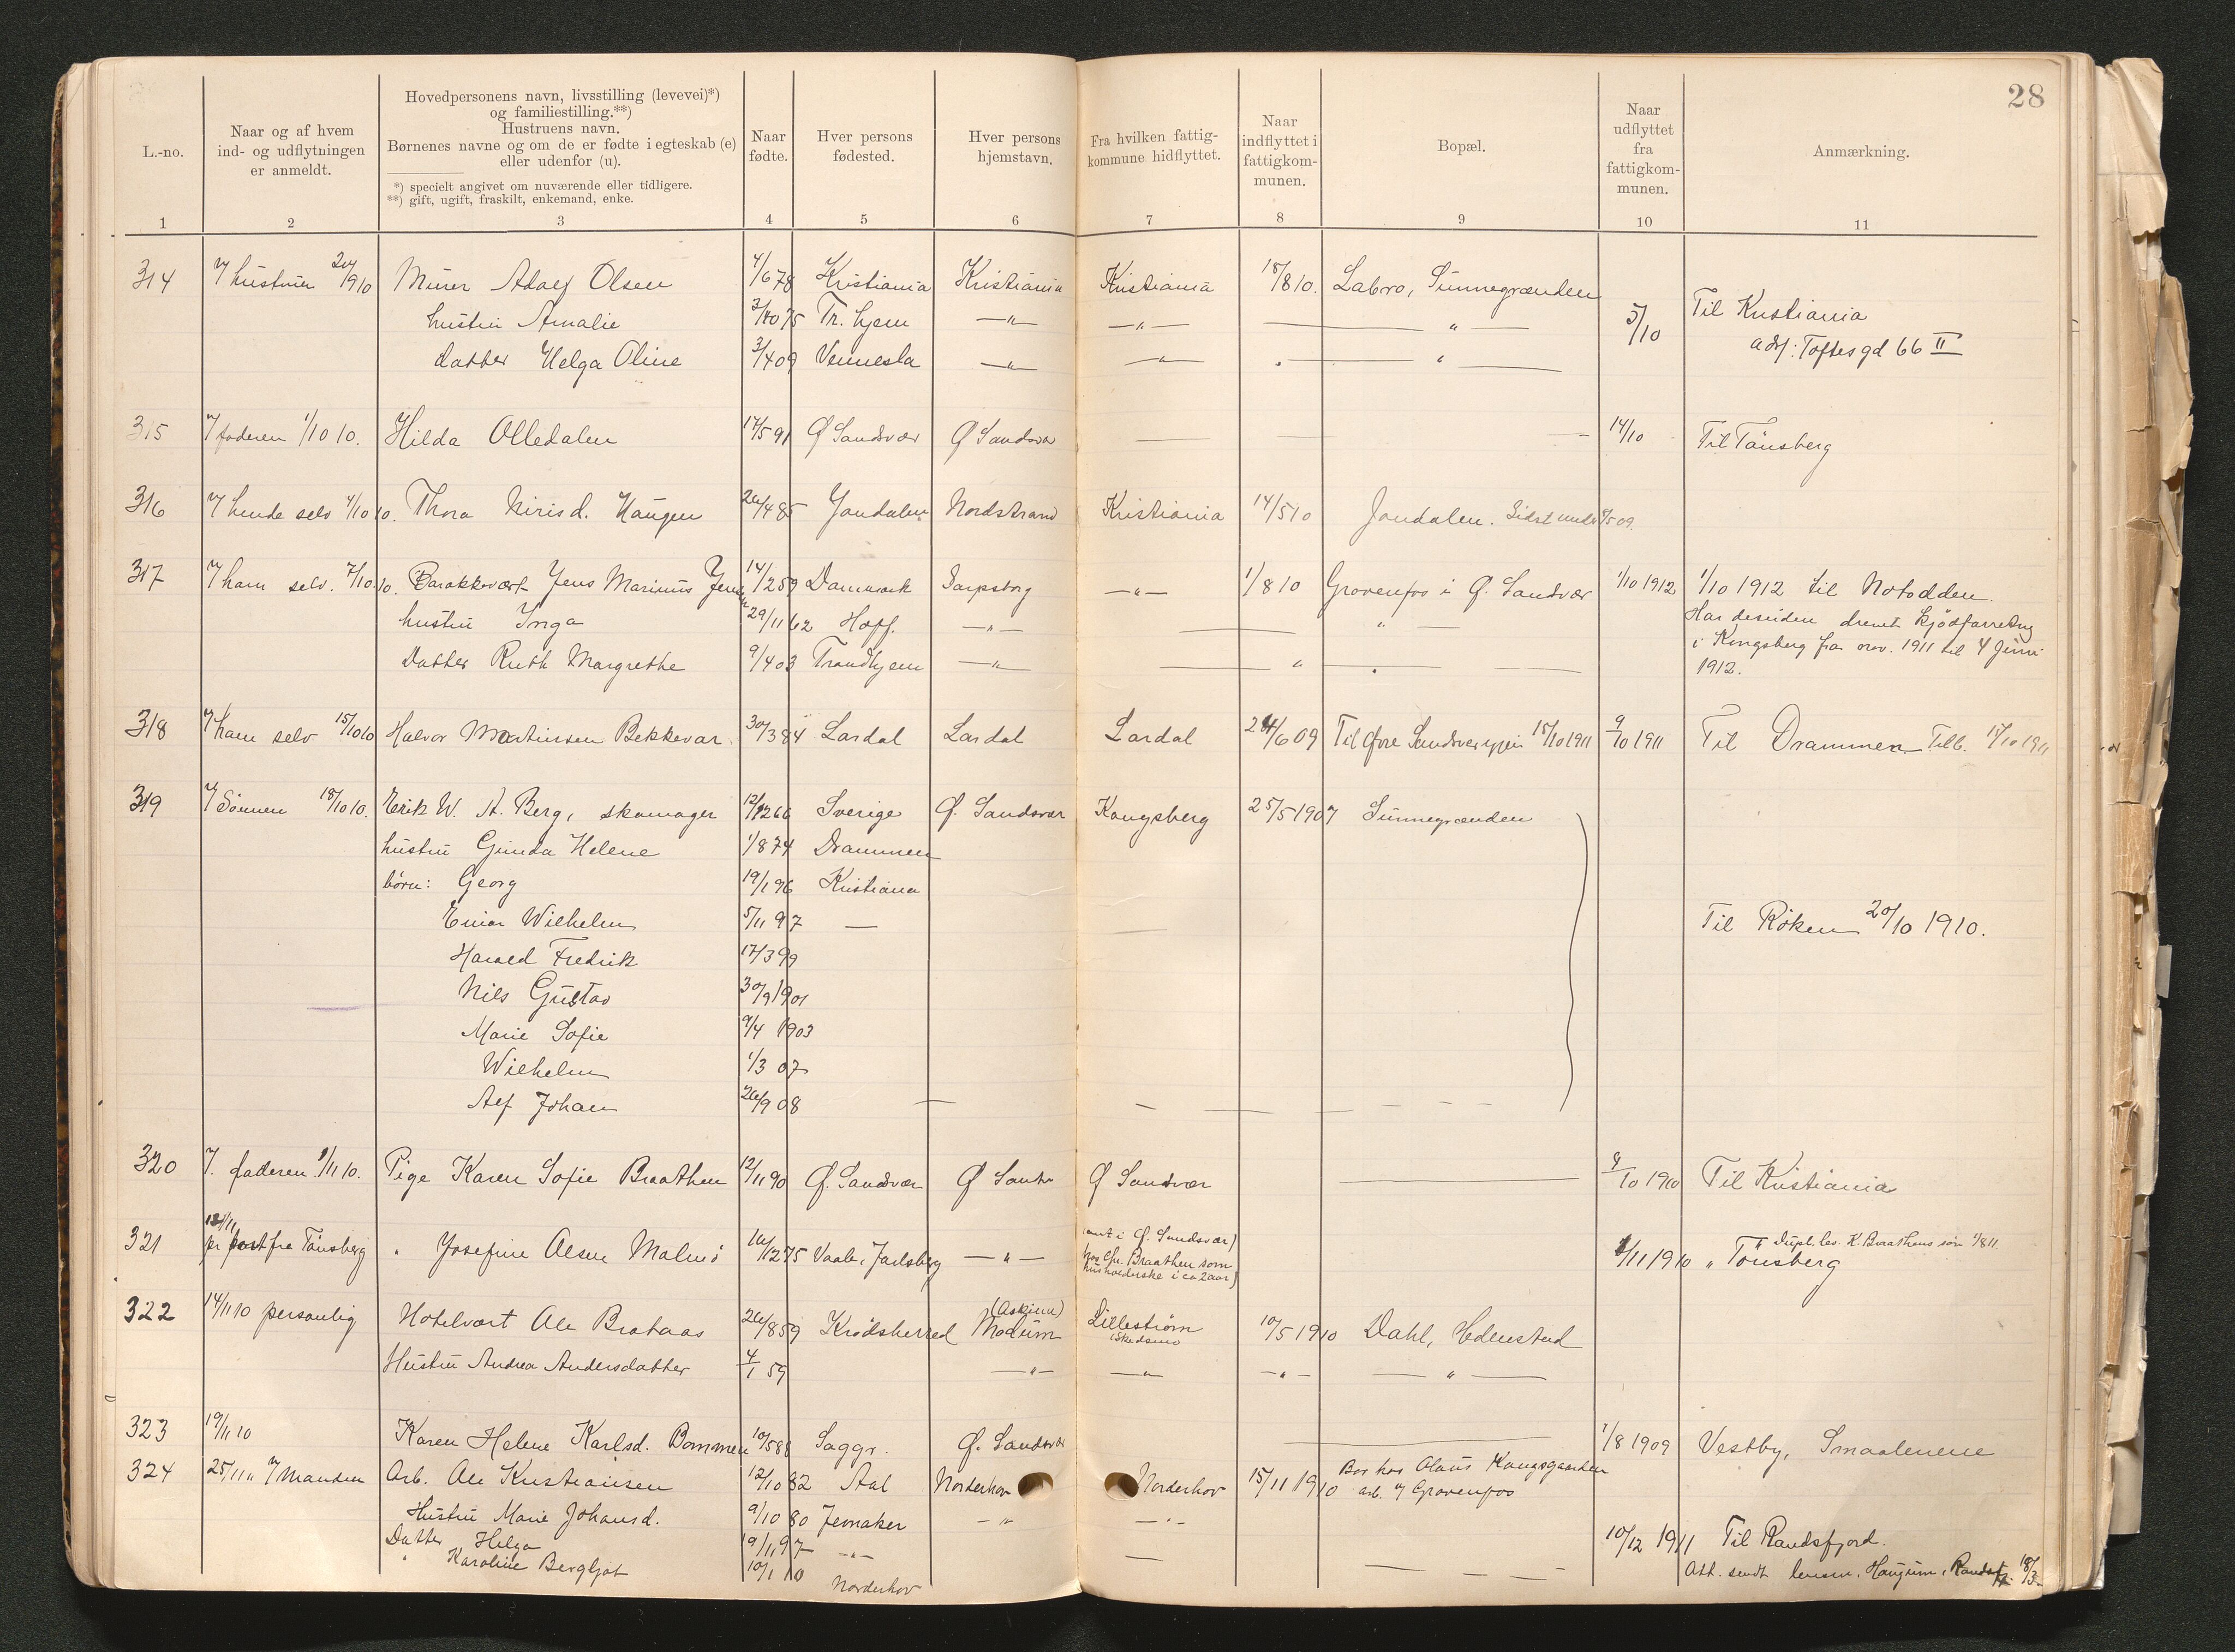 28
L.-no.
Naar og af hvem
ind- og udflytningen
er anmeldt.
Hovedpersonens navn, livsstilling (levevei)*)
og familiestilling.**)
Hustruens navn.
Børnenes navne og om de er fødte i egteskab (e)
eller udenfor (u).
*) specielt angivet om nuværende eller tidligere.
**) gift, ugift, fraskilt, enkemand, enke.
Naar
fødte.
Hver persons
fødested.
Hver persons
hjemstavn.
Fra hvilken fattig-
kommune hidflyttet.
Naar
indflyttet i
fattigkom-
munen.
Bopæl.
Naar
udflyttet
fra
fattigkom-
munen.
Anmærkning.
1 2 3 4 5 6 7 8 9 10 11
314 hustruen Murer Adolf Olsen 4/6 78 Kristiania Kristiania Kristiania 18/8 10. Labro, Sünnegrænden
hustru Amalie Tr. hjem — " — — " — — " — 5/10 Til Kristiania
datter Helga Oline 3/4 09 Vennesla — " — — " — — " — adr: Toftesgd 66 II
315 faderen 1/10 10. Hilda Olledalen 17/5 91 Ø Sandsvær Ø Sandsvær — — — 14/10 Til Tönsberg
316 hende selv 4/10 10. Thora Nirisd. Haugen 26/4 85 Jondalen Nordstrand Kristiania 14/5 10 Jondalen. Sidst
317 ham selv. 7/10 10. Barakkevært Jens Marinus 14/2 59 Danmark Sarpsborg — " — 1/8 10 Gravenfos i Ø. Sandsvær 1/10 1912 1/10 1912 til Notodden.
hustru Inga 29/11 62 Hoff. — " — — " — Har desuden drevet kjødforretng
Datter Ruth Margrethe 9/4 03 Trondhjem — " — — " — i Kongsberg fra nov. 1911 til 4 Juni
1912.
318 ham selv 15/10 10 Halvor Martinsen Bekkevar 30/3 84 Lardal Lardal Lardal Til Øvre Sandsvær igjen 15/10 1911 9/10 1911 Til Drammen Tilb. 15/10 1911
319 Sönnen 18/10 10. Erik W. A. Berg, skomager Sverige Ø. Sandsvær Kongsberg 25/5 1907 Sünnegrænden
hustru Gunda Helene 1/8 74 Drammen
börn: Georg 19/1 96 Kristiania
Einar Wilhelm 5/11 97 — Til Röken 20/10 1910.
Harald Fredrik 17/3 99
Nils Gustav 30/9 1901
Marie Sofie 9/4 1903
Wilhelm 1/3 07
Alf Johan 26/9 08
320 faderen 9/11 10. Pige Karen Sofie Braathen 12/11 90 Ø. Sandsvær Ø Sandsv Ø Sandsvær — Til Kristiania
321 pr post fra Tönsberg " Josefine Olsen Malmö 16/12 75 Vaale, Jarlsberg — " — Ø. Sandsvær)
hos Braathen som
husholderske i ca 2 aar) /11 1910 " Tönsberg Dupl. lev. K. Braathens sön
322 14/11 10 personlig Hotelvært Ole Brataas 26/8 59 Krödsherred (Askim)
Modum Lilleström
(Skedsmo 10/5 1910 Dahl, Hedenstad
Hustru Andrea Andersdatter 4/1 59 — " — — " — — " — — " —
323 19/11 10 Karen Helene Karlsd. Bommen 10/5 88 Saggr. Ø. Sandsvær — 1/8 1909 Vestby, Smaalenene
324 25/11 " Manden Arb. Ole Kristiansen 12/10 82 Aal Norderhov Norderhov 15/11 1910 Bor hos Olaus Kongsgaarden
arb. Gravenfos
Hustru Marie Johansd. 9/10 80 Jevnaker — " — — " —
Datter Helga 19/11 97 — " — 10/12 1911 Til Randsfjord.
" Karoline Bergljot 10/1 10 Norderhov Att. sendt lensm. Haugum, 18/3